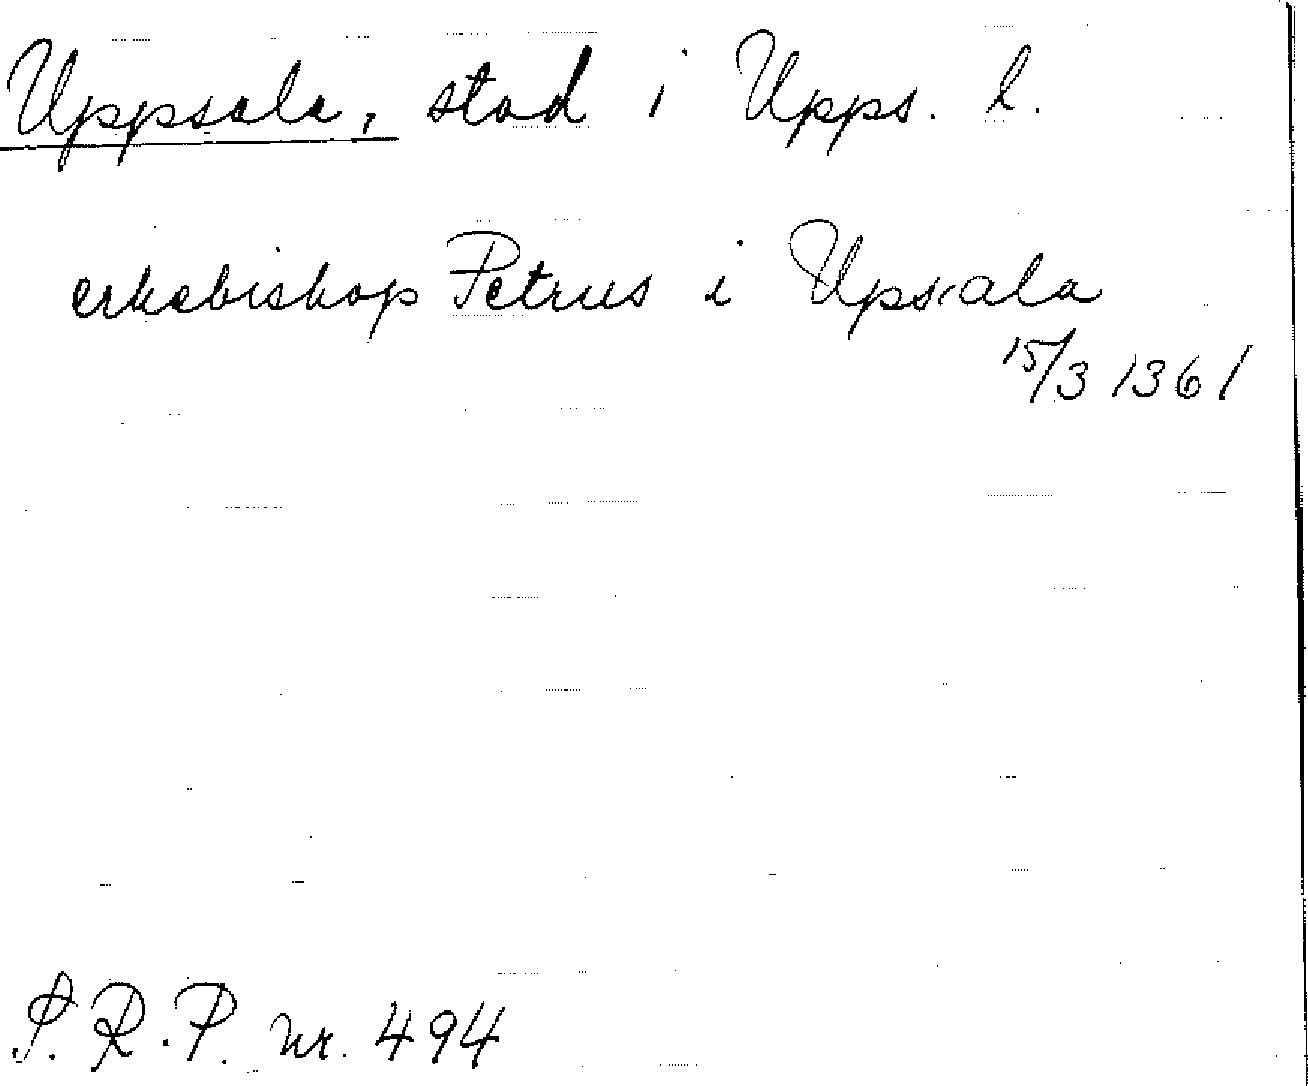 Uppsala, stad i Upps. l.
erkebiskop Petrus i Upsala
15/3 1361
S.R.P. nr. 494